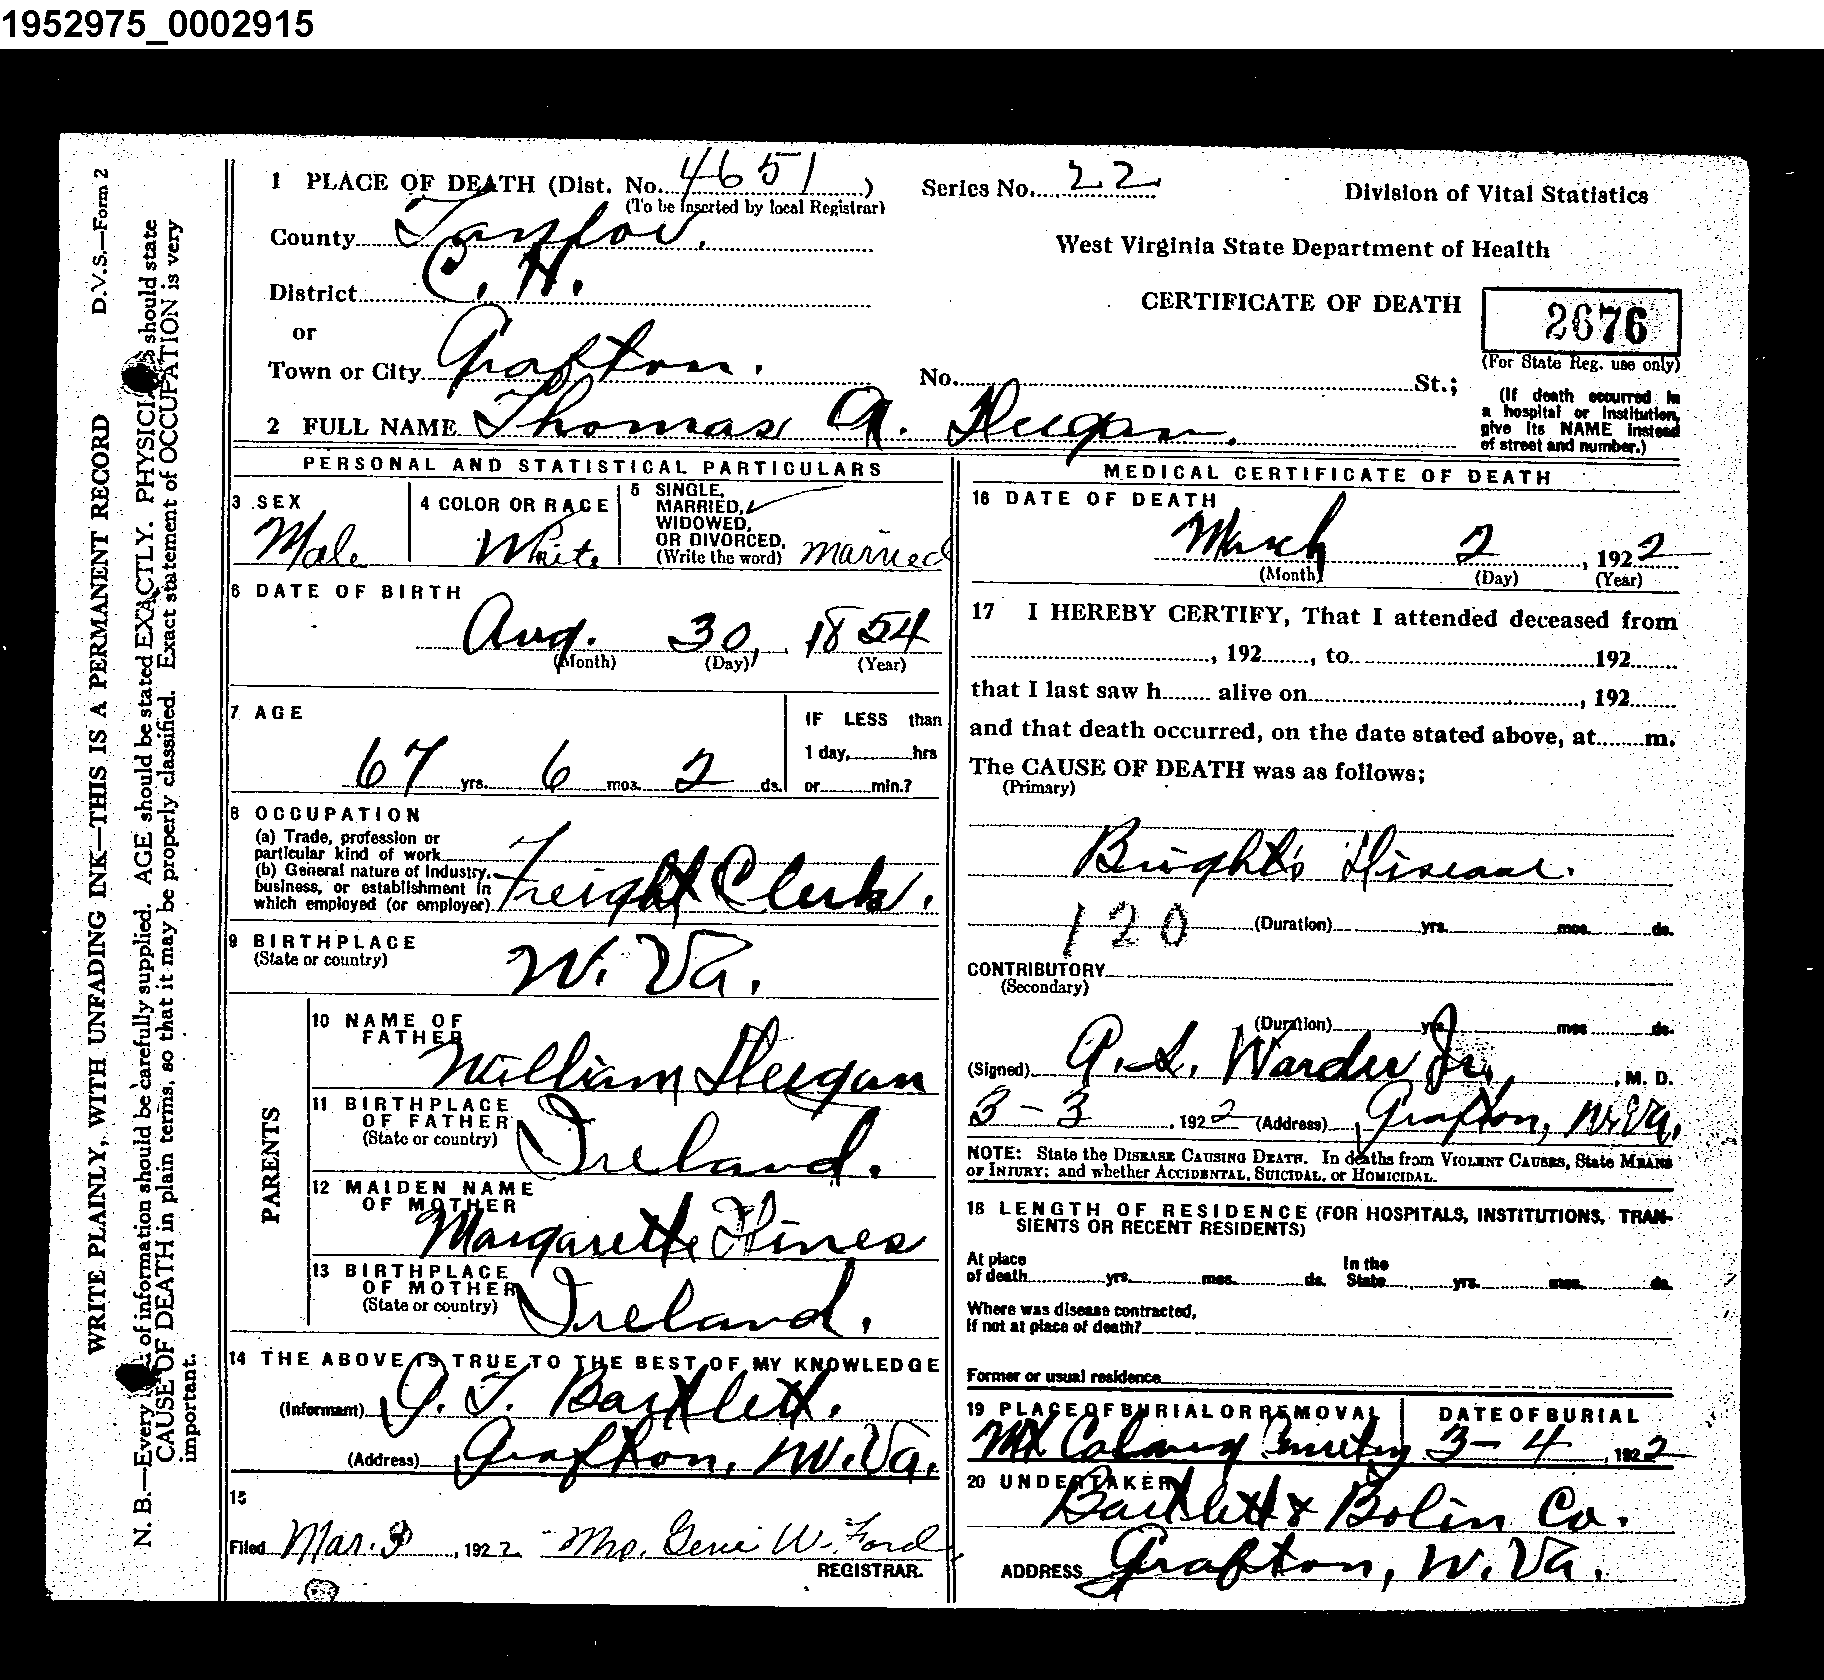 1952975_0002915
D.V.S.—Form 2
WRITE PLAINLY, WITH UNFADING INK—THIS IS A PERMANENT RECORD
N. B.—Every of information should be carefully supplied. AGE should be stated EXACTLY. PHYSICIANS should state
CAUSE OF DEATH in plain terms, so that it may be properly classified. Exact statement of OCCUPATION is very
important.
1 PLACE OF DEATH (Dist. No. 4651)
(To be inserted by local Registrar)
Series No. 22
Division of Vital Statistics
County Taylor.
West Virginia State Department of Health
District C. H.
CERTIFICATE OF DEATH
2676
(For State Reg. use only)
or
Town or City Grafton.
No. St.;
(If death occurred in
a hospital or institution,
give its NAME instead
of street and number.)
2 FULL NAME Thomas A.
PERSONAL AND STATISTICAL PARTICULARS
3 SEX
Male
4 COLOR OR RACE
White
5 SINGLE,
MARRIED,
WIDOWED,
OR DIVORCED,
(Write the word) married
6 DATE OF BIRTH
Aug. 30, 1854
(Month) (Day) (Year)
7 AGE
67 yrs. 6 mos. 2 ds.
IF LESS than
1 day, hrs
or min.?
8 OCCUPATION
(a) Trade, profession or
particular kind of work
(b) General nature of Industry,
business, or establishment in
which employed (or employer)
Freight Clerk.
9 BIRTHPLACE
(State or country)
W. Va.
PARENTS
10 NAME OF
FATHER
William
11 BIRTHPLACE
OF FATHER
(State or country)
Ireland.
12 MAIDEN NAME
OF MOTHER
Margarette Hines
13 BIRTHPLACE
OF MOTHER
(State or country)
Ireland.
14 THE ABOVE IS TRUE TO THE BEST OF MY KNOWLEDGE
(Informant) J. T. Bartlett.
(Address) Grafton, W. Va.
15
Filed Mar. 3, 1922 Mrs. Genie W. Ford
REGISTRAR.
MEDICAL CERTIFICATE OF DEATH
16 DATE OF DEATH
March 2, 1922
(Month) (Day) (Year)
17 I HEREBY CERTIFY, That I attended deceased from
, 192 , to 192
that I last saw h alive on , 192
and that death occurred, on the date stated above, at m.
The CAUSE OF DEATH was as follows;
(Primary)
Bright's Disease.
120
(Duration) yrs. mos. ds.
CONTRIBUTORY
(Secondary)
(Duration) yrs. mos. ds.
(Signed) A. L. Warder Jr., M. D.
3-3, 1922 (Address) Grafton, W. Va.
NOTE: State the DISEASE CAUSING DEATH. In deaths from VIOLENT CAUSES, State MEANS
OF INJURY; and whether ACCIDENTAL, SUICIDAL, or HOMICIDAL.
18 LENGTH OF RESIDENCE (FOR HOSPITALS, INSTITUTIONS, TRAN-
SIENTS OR RECENT RESIDENTS)
At place
of death yrs. mos. ds.
In the
State yrs. mos. ds.
Where was disease contracted,
if not at place of death?
Former or usual residence
19 PLACE OF BURIAL OR REMOVAL
Mt Calvary Cemetery
DATE OF BURIAL
3-4, 1922
20 UNDERTAKER
Bartlett & Bolin Co.
ADDRESS Grafton, W. Va.